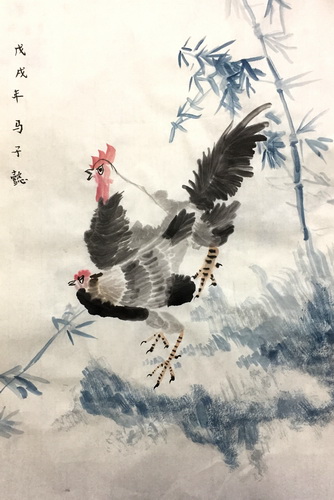 戊戌年马子懿